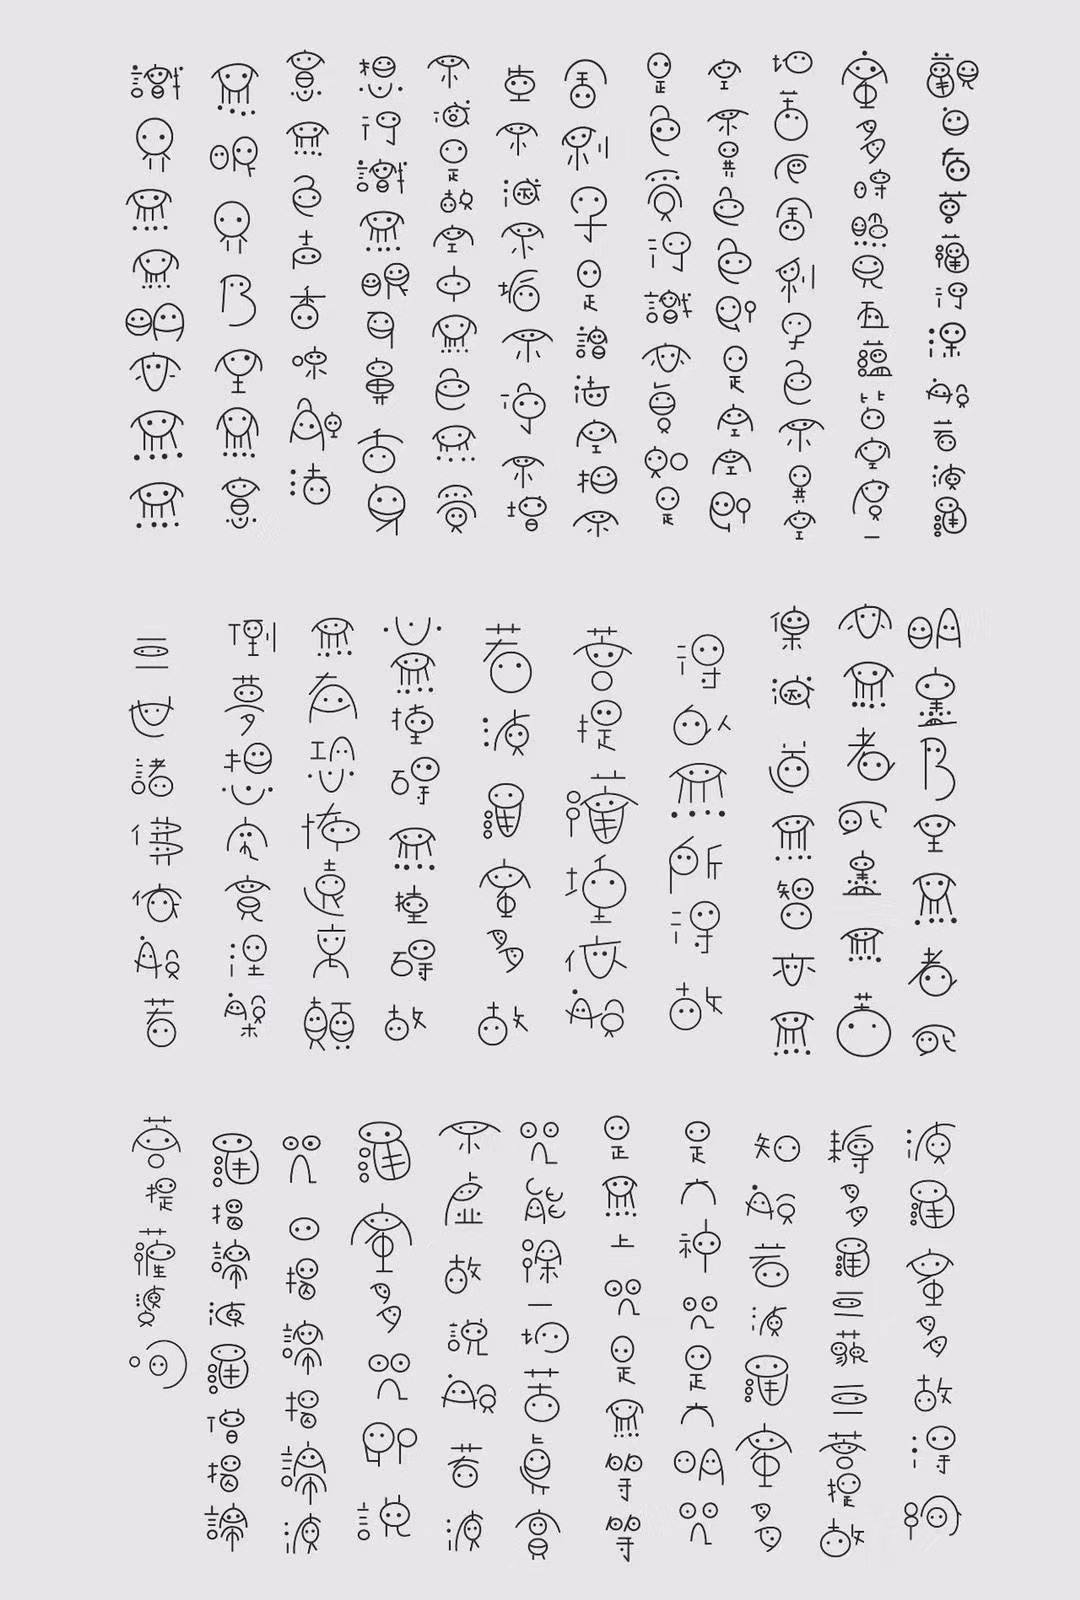 觀自在菩薩行深般若波羅
蜜多時照見五蘊皆空度一
切苦厄舍利子色不異空
空不異色色即是空空即
是色受行識亦復如是
舍利子是諸法空相不
生不滅不垢不淨不增
不減是故空中無色無受
想行識無眼耳鼻舌身
意無色声香味觸法
無眼界乃至無意
識界無無明亦無無
明盡乃至無老死
亦無老死盡無苦
集滅道無智亦無
得以無所得故
菩提薩埵依般
若波羅蜜多故
心無挂碍無挂碍故
無有恐怖遠離顛
倒夢想究竟涅槃
三世諸佛依般若
波羅蜜多故得阿
耨多羅三藐三菩提故
知般若波羅蜜多
是大神咒是大明咒
是無上咒是無等等
咒能除一切苦真實
不虛故說般若波
羅蜜多咒即說
咒曰揭諦揭諦波
羅揭諦波羅僧揭諦
菩提薩婆訶